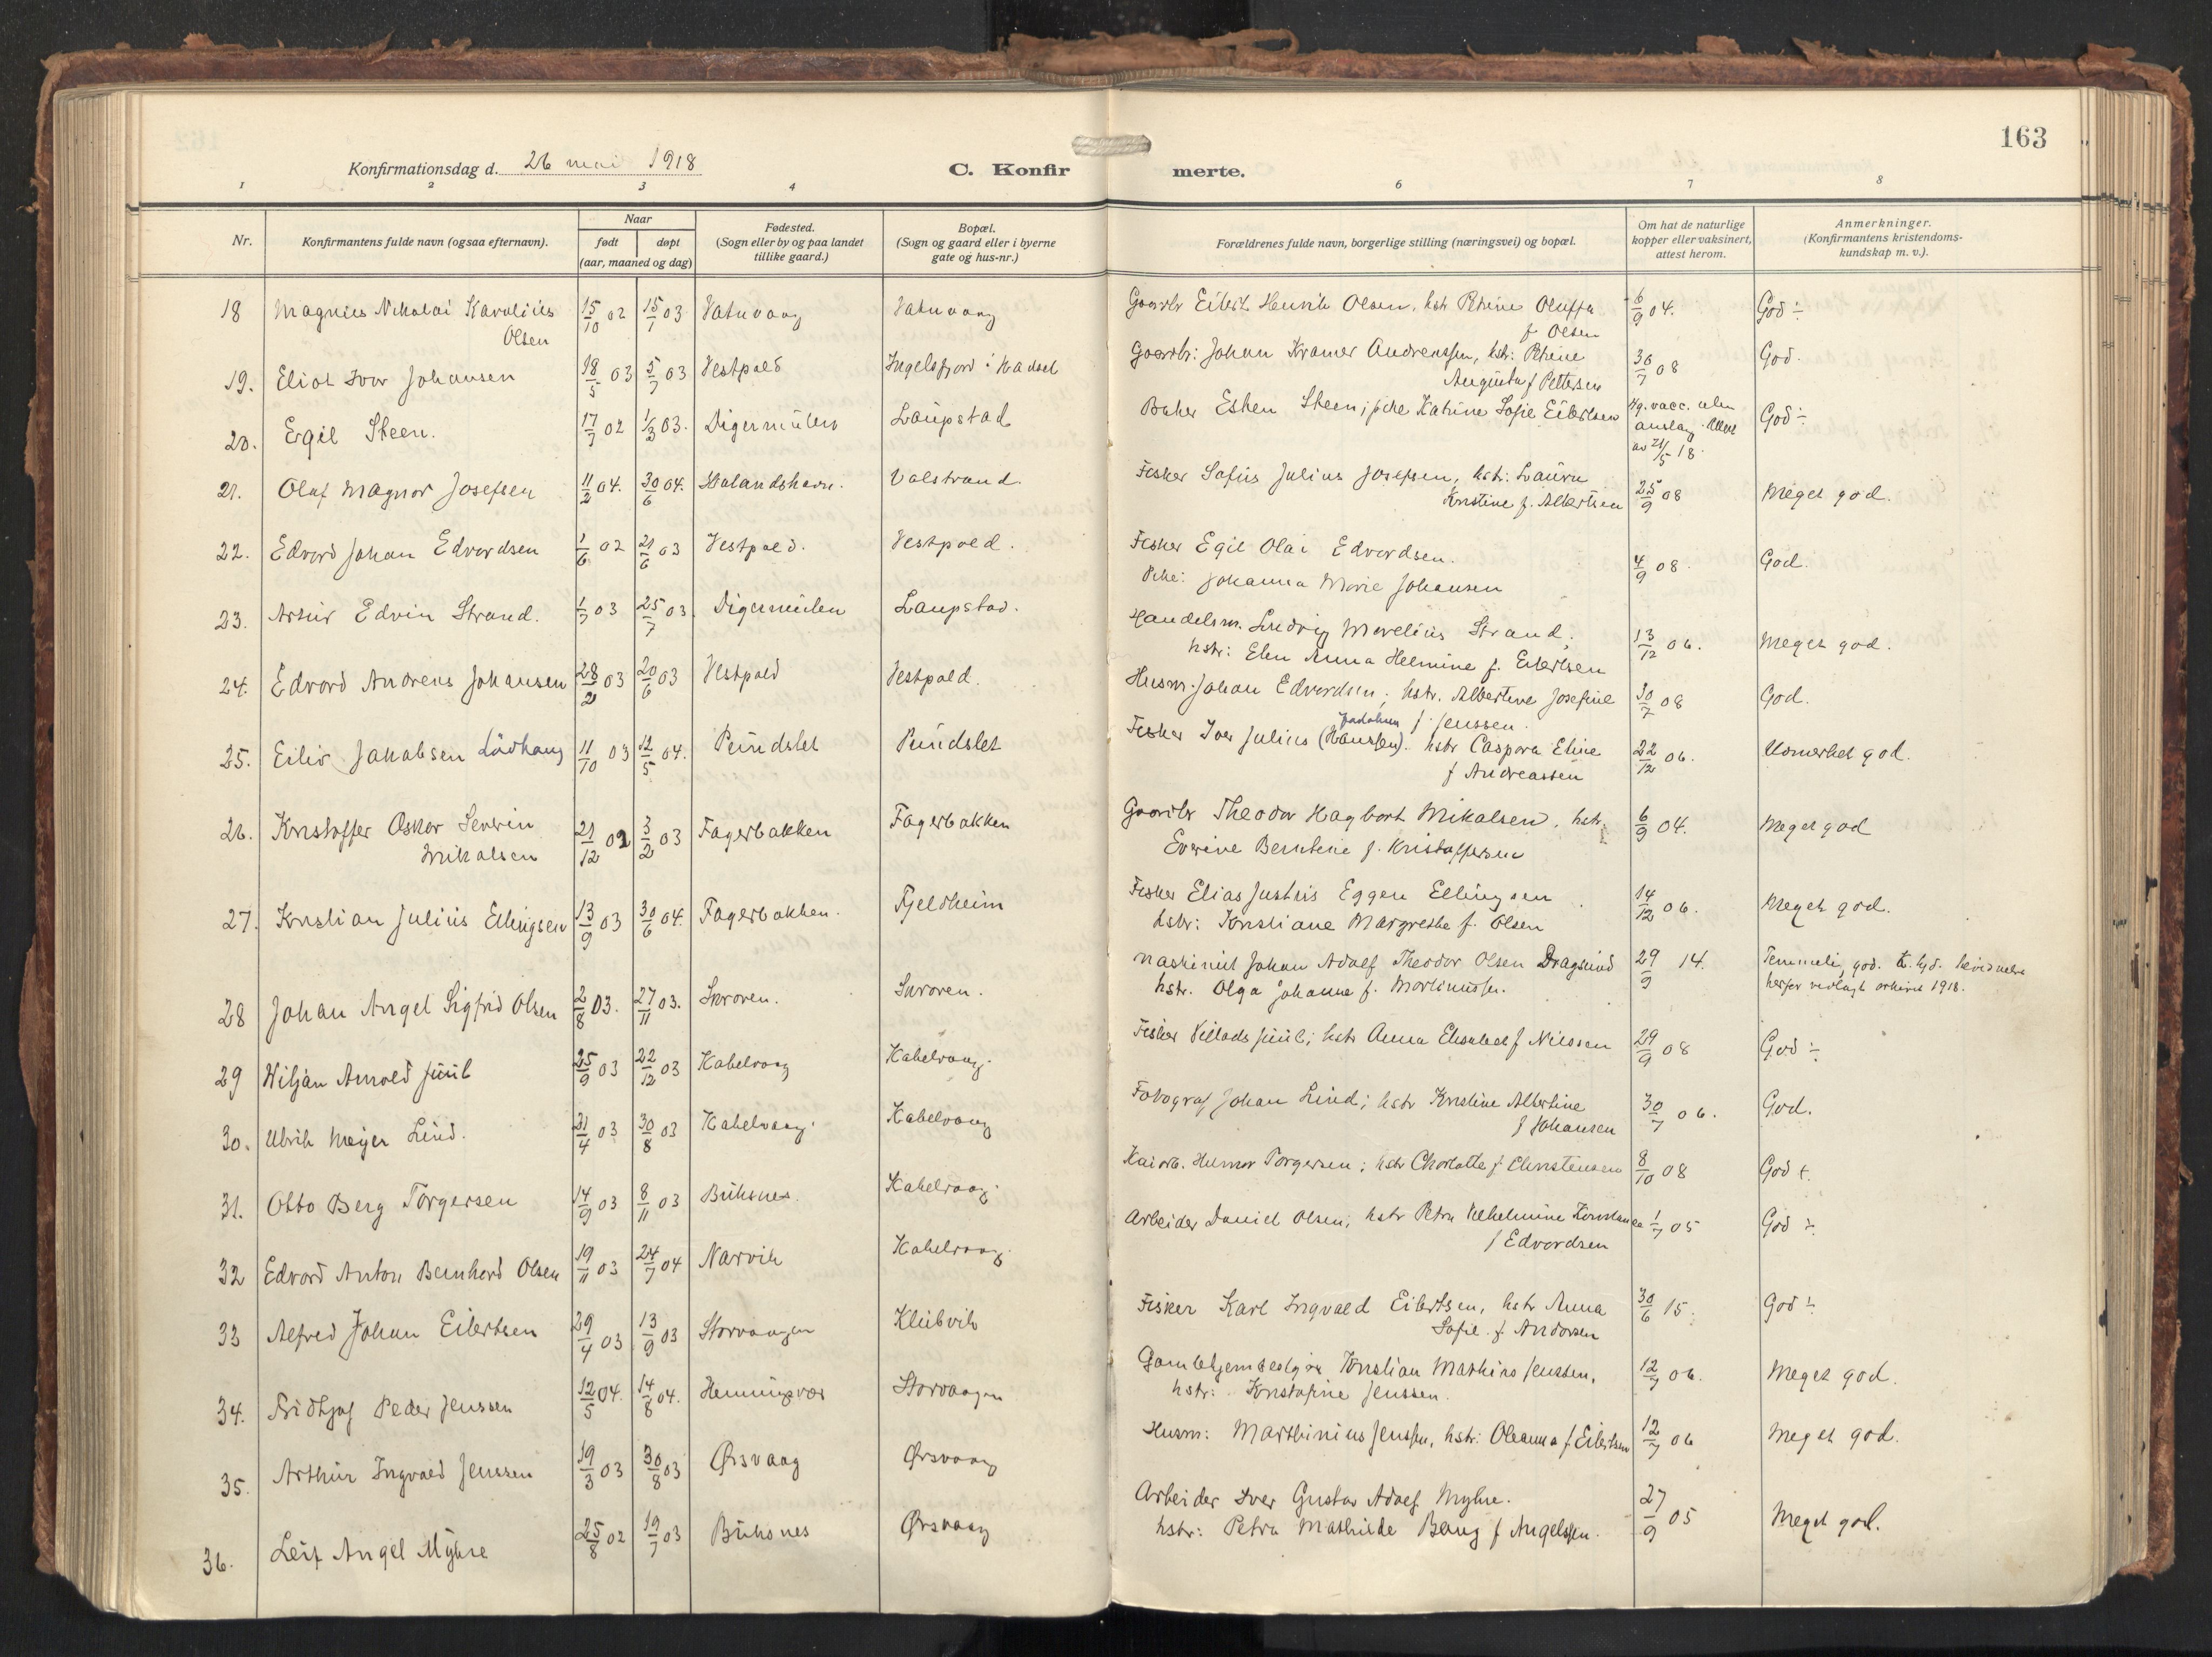 163
Konfirmationsdag d. 26 mai 1918
C. Konfirmerte.
1 2 3 4 6 7 8
Nr.
Konfirmantens fulde navn (ogsaa efternavn).
Naar
født døpt
(aar, maaned og dag)
Fødested.
(Sogn eller by og paa landet
tillike gaard.)
Bopæl.
(Sogn og gaard eller i byerne
gate og hus-nr.)
Forældrenes fulde navn, borgerlige stilling (næringsvei) og bopæl.
Om hat de naturlige
kopper eller vaksinert,
attest herom.
Anmerkninger.
(Konfirmantens kristendoms-
kundskap m. v.).
18 Magnus Nikolai Karolius 15/10 02 15/1 03 Vatnvaag Vatnvaag Gaardbr Eilert Henrik Olsen, hstr Petrine Oluffa 6/9 04. God ÷
Olsen f Olsen
19. Eliot Ivar Johansen 18/5 03 5/7 03 Vestpold Ingelsfjord i Hadsel Gaardbr: Johan Kramer Andreassen, hstr: Petrine 30/7 08 God.
Augusta f Pettersen
20. Egil Steen. 17/7 02 1/3 03. Digermulen Laupstad Baker Esten Steen; pike Katrine Sofie Eilertsen Hg. vacc. uten God ÷
anslag. Attest
av 21/5 18.
21. Olaf Magnor Josefsen 11/2 04. 30/6 04. Valstrand. Fisker Sofus Julius Josefsen, hstr: Laura 25/9 08 Meget god.
Kristine f. Albertsen
22. Edvard Johan Edvardsen 1/6 02 21/6 03 Vestpold. Vestpold. Fisker Egil Olai Edvardsen. 4/9 08. God.
Pike: Johanna Marie Johansen
23. Artur Edvin Strand. 1/7 03 25/7 03. Digermulen Laupstad. Handelsm. Ludvig Morelius Strand, 13/12 06. Meget god.
hstr: Elen Anna Helmine f. Eilertsen
24. Edvard Andreas Johansen 28/2 03 20/6 03 Vestpold Vestpold. Husm. Johan Edvardsen, hstr. Albertine Josefine 30/7 08 God.
f Jenssen.
25. Eiliv Jakobsen Lødhaug 11/10 03 12/5 04. Pundslet Pundslet Fisker Iver Julius (Hanssen). hstr Caspara Eline 22/12 06. Usmerket god.
f Andreassen
26. Kristoffer Oskar Severin 21/12 02 3/2 03 Fagerbakken Fagerbakken Gaardbr Theodor Hagbart Mikalsen, hstr. 6/9 04. Meget god
Mikalsen Everine Berntine f. Kristoffersen
27. Kristian Julius Ellingsen 13/9 03 30/6 04. Fagerbakken. Fjeldheim Fisker Elias Justnis Eggen Ellingsen 14/12 06. Meget god.
hstr: Kristiane Margrethe f. Olsen
28 Johan Angel Sigfrid Olsen 2/8 03. 27/11 03. Skroven. Skroven. Maskinist Johan Adolf Theodor Olsen Dragsund 29/9 14. Temmeli god.
hstr. Olga Johanne f. Martinussen. herfor vedlagt arkivet 1918.
29 Viljan Arnold Juul 25/9 03 22/12 03 Kabelvaag Kabelvaag. Fisker Villads Juul; hstr Anna Elisabet f Nilssen 29/9 08 God ÷
30. Ulrik Meyer Lind. 21/4 03 30/8 03 Kabelvaag. Kabelvaag Fotograf Johan Lind; hstr Kristine Albertine 30/7 06. God.
f Johansen
31. Otto Berg Torgersen 14/9 03 8/11 03 Buksnes. Kabelvaag. Torgersen; hstr Charlotte f Christensen 8/10 08 God +.
32 Edvard Anton Bernhard Olsen 19/11 03 24/7 04 Narvik Kabelvaag. Arbeider Daniel Olsen; hstr Petra Vilhelmine Konstanse 1/7 05 God ÷
f Edvardsen
33 Alfred Johan Eilertsen 29/4 03 13/9 03 Storvaagen Klubvik Fisker Karl Ingvald Eilertsen, hstr Anna 30/6 15. God ÷
Sofie f. Andorsen
34. Fridtjof Peder Jenssen 12/5 04. 14/8 04. Henningsvær Storvaagen Gamlehjembestyrer Kristian Mathias Jenssen, 12/7 06. Meget god.
hstr: Kristofine Jenssen.
35. Arthur Ingvald Jenssen 19/3 03 30/8 03 Ørsvaag Ørsvaag Husm: Marthinius Jenssen, hstr: Oleanna f. Eilertsen 12/7 06 Meget god.
36. Leif Angel Myhre 25/8 02 19/7 03 Buksnes Ørsvaag Arbeider Iver Gustav Adolf Myhre. 27/9 05 Meget god.
hstr: Petra Mathilde Berg f Angelsen.